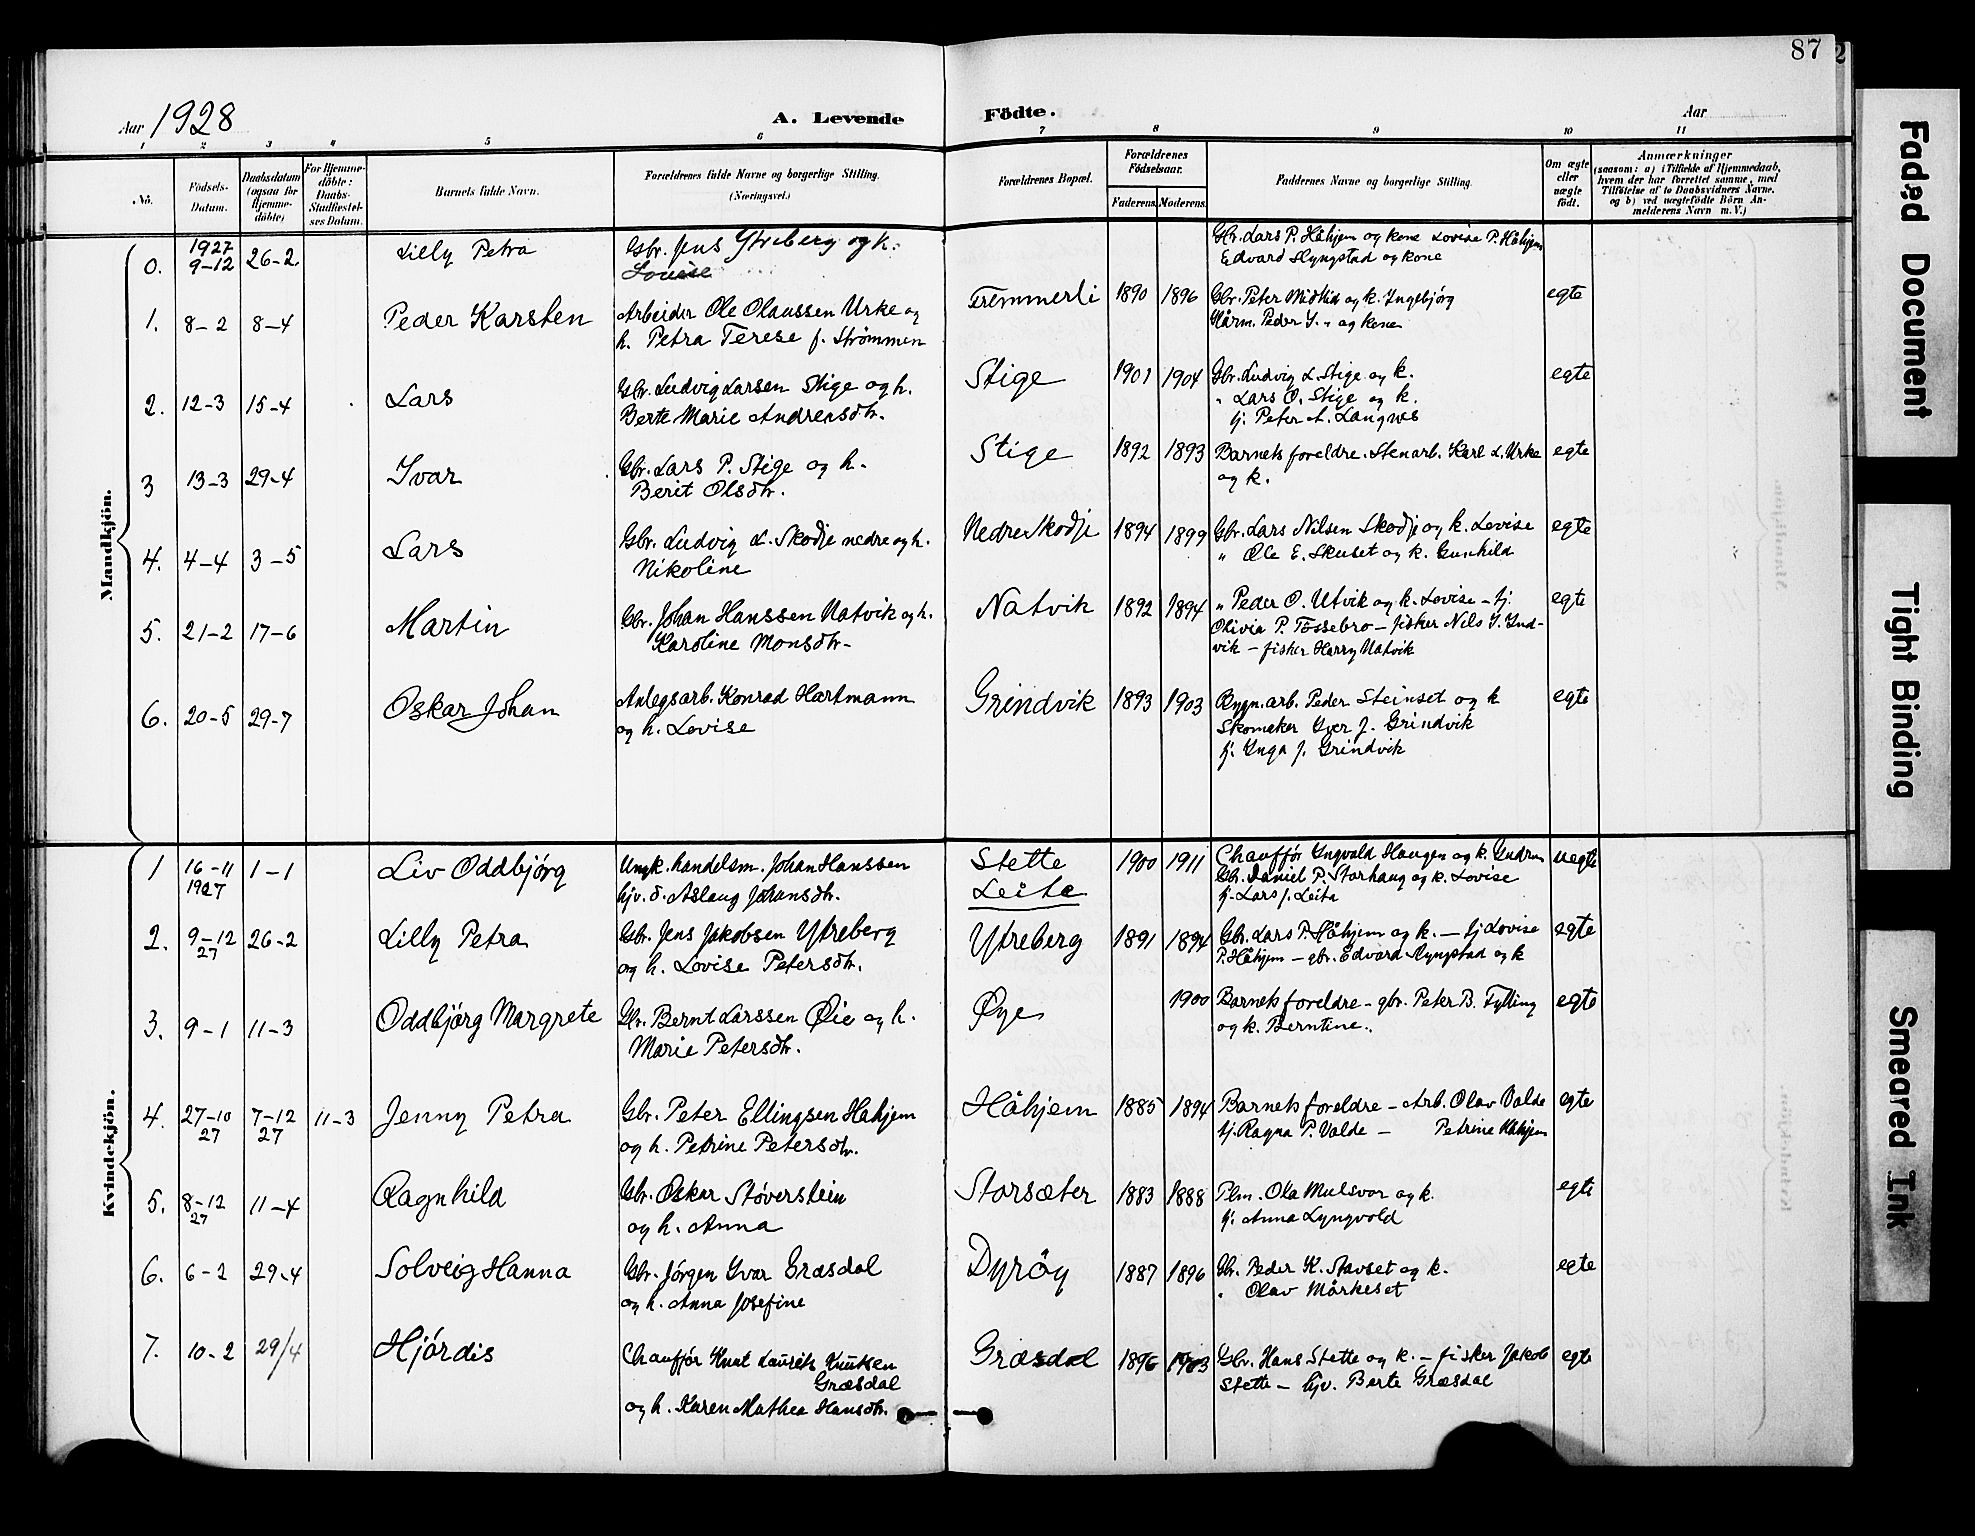 87
Aar 1928
A. Levende
Födte.
Aar
1 2 3 4 5 6 7 8 9 10 11
No.
Födsels-Datum.
Daabsdatum (ogsaa for Hjemme-döbte)
For Hjemme-döbte: Daabs-Stadfæstel-ses Datum.
Barnets fulde Navn.
Forældrenes fulde Navne og borgerlige Stilling. (Næringsvei.)
Forældrenes Bopæl.
Forældrenes Födselsaar.
Faderens. Moderens.
Faddernes Navne og borgerlige Stilling.
Om ægte eller uægte födt.
Anmærkninger
(saasom: a) i Tilfælde af Hjemmedaab, hvem der har forrettet samme, med Tilföielse af to Daabsvidners Navne, og b) ved uægtefödte Börn An-melderens Navn m. V.)
Mandkjön.
0. 1927 9-12 26-2 Lilly Petra Gbr. Jens Ytreberg og h. Lovise
Gbr. Lars P. Håhjem og kone Lovise P. Håhjem
Edvard Slyngstad og kone
1. 8-2 8-4 Peder Karsten Arbeider Ole Olaussen Urke og
h. Petra Terese f. Strömmen
Fremmerli 1890 1896 Gbr. Peter Midtlid og k. Ingebjørg egte
Gårm. Peder Y. " og kone
2. 12-3 15-4 Lars Gbr. Ludvig Larsen Stige og h.
Berte Marie Andreasdtr.
Stige 1901 1904 Gbr. Ludvig L. Stige og k. egte
" Lars O. Stige og k.
tj. Peter A. Langnes
3 13-3 29-4 Ivar Gbr. Lars P. Stige og h.
Berit Olsdtr.
Stige 1892 1893 Barnets foreldre. Stenarb. Karl L. Urke egte
og k.
4. 4-4 3-5 Lars Gbr. Ludvig L. Skodje nedre og h.
Nikoline
Nedre Skodje 1894 1899 Gbr. Lars Nilsen Skodje og k. Lovise egte
" Ole E. Skuset og k. Gunhild
5. 21-2 17-6 Martin Gbr. Johan Hanssen Natvik og h.
Karoline Monsdtr-
Natvik 1892 1894 " Peder O. Utvik og k. Lovise - tj. egte
Olivia P. Tössebro - fisker Nils I. Ind-
vik - fisker Harry Natvik
6. 20-5 29-7 Oskar Johan Anlegsarb. Konrad Hartmann
og h. Lovise
Grindvik 1893 1903 Bygn.arb. Peder Steinset og k egte
Skomaker Iver J. Grindvik
tj. Inga J. Grindvik
Kvindekjön.
1 16-11 1927 1-1 Liv Oddbjörg Ungk. handelsm. Johan Hanssen
tjv. d. Aslaug Johansdtr.
Stette
Leite
1900 1911 Chauffør Ingvald Haugen og k. Gudrun uegte
Gbr. Daniel P. Storhaug og k. Lovise
tj. Lars J. Leita
2. 9-12 27 26-2 Lilly Petra Gbr. Jens Jakobsen Ytreberg
og h. Lovise Petersdtr.
Ytreberg 1891 1894 Gbr. Lars P. Håhjem og k. - tj Lovise egte
P. Håhjem - gbr. Edvard Slyngstad og k
3. 9-1 11-3 Oddbjørg Margrete Gbr. Bernt Larssen Øie og h.
Marie Petersdtr.
Øye 1900 Barnets foreldre - gbr. Peter B. Fylling egte
og k. Berntine.
4. 27-10 27 7-12 27 11-3 Jenny Petra Gbr. Peter Ellingsen Håhjem
og h. Petrine Petersdtr.
Håhjem 1885 1894 Barnets foreldre - Arb. Olav Valde egte
tj. Ragna P. Valde - Petrine Håhjem
5. 8-12 27 11-4 Ragnhild Gbr. Oskar Støverstein
og h. Anna
Storsæter 1883 1888 Plm. Ola Mulsvor og k. egte
tj. Anna Lyngvold
6. 6-2 29-4 Solveig Hanna Gbr. Jørgen Ivar Græsdal
og h. Anna Josefine
Dyröy 1887 1896 Gbr. Peder K. Stavset og k. egte
" Olav Mårkeset
7. 10-2 29/4 Hjördis Chauffør Knut Laurits Knutsen
Græsdal
og h. Karen Mathea Hansdtr.
Græsdal 1896 1903 Gbr. Hans Stette og k. - fisker Jakob egte
Stette - tjv. Berte Græsdal
Faded Document
Tight Binding
Smeared Ink